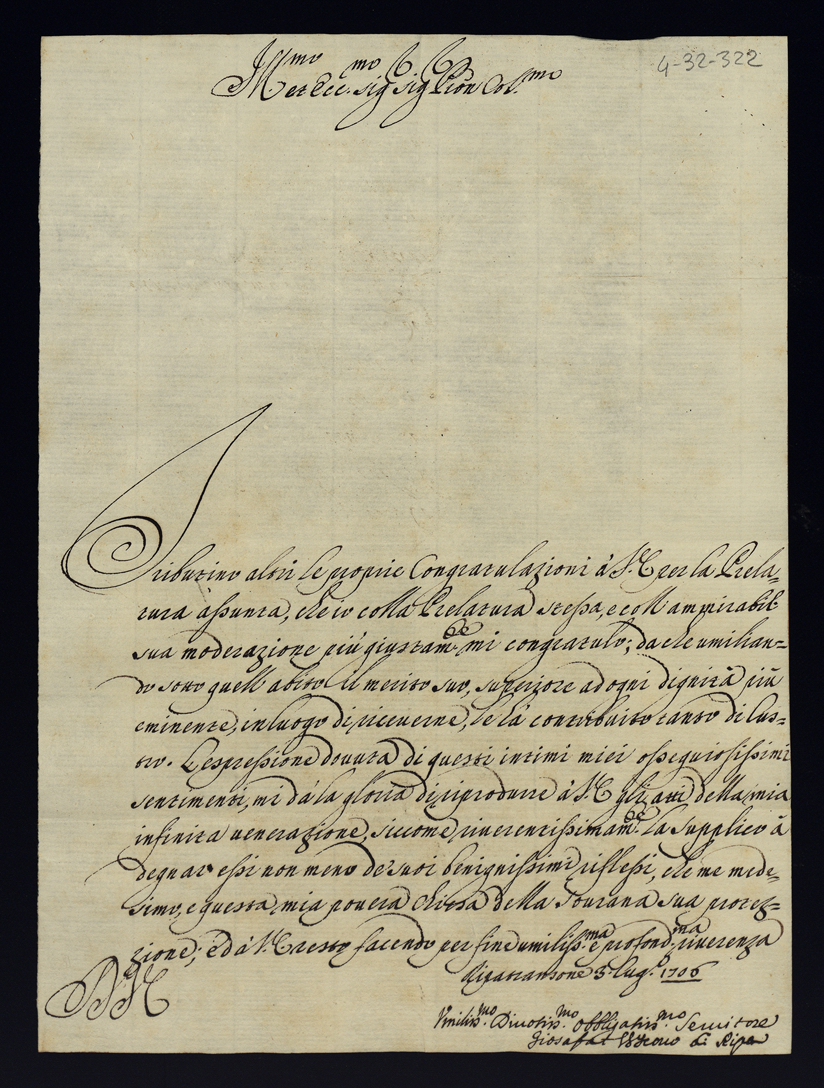 4-32-322
Ill.mo et Ecc.mo Sig.r Sig.r Pron Col.mo
Tributino altri le proprie Congratulazioni à V.E. per la Prela-
tura assunta, che io colla Prelatura stessa, e coll' ammirabil
sua moderazione più giustam.te mi congratulo; da che umilian-
do sotto quell' abito il merito suo, superiore ad ogni dignità più
eminente, in luogo di riceverne, le hà contribuito tanto di lus-
tro. L'espressione dovuta di questi intimi miei ossequiosissimi
sentimenti, mi dà la gloria di riprodurre à V.E. gli atti della mia
infinita venerazione, siccome riverentissimam.te la supplico à
degnar essi non meno de' suoi benignissimi riflessi, che me mede-
simo, e questa mia povera chiesa della Sourana sua protez-
zione; ed à V.E. resto facendo per fine umiliss.ma e profond.ma riverenza
Ripatransone 3 lug.o 1706
V.E.
Vmiliss.mo Divotiss.mo Obbligatiss.mo Servitore
Giosafat Vescovo di Ripa